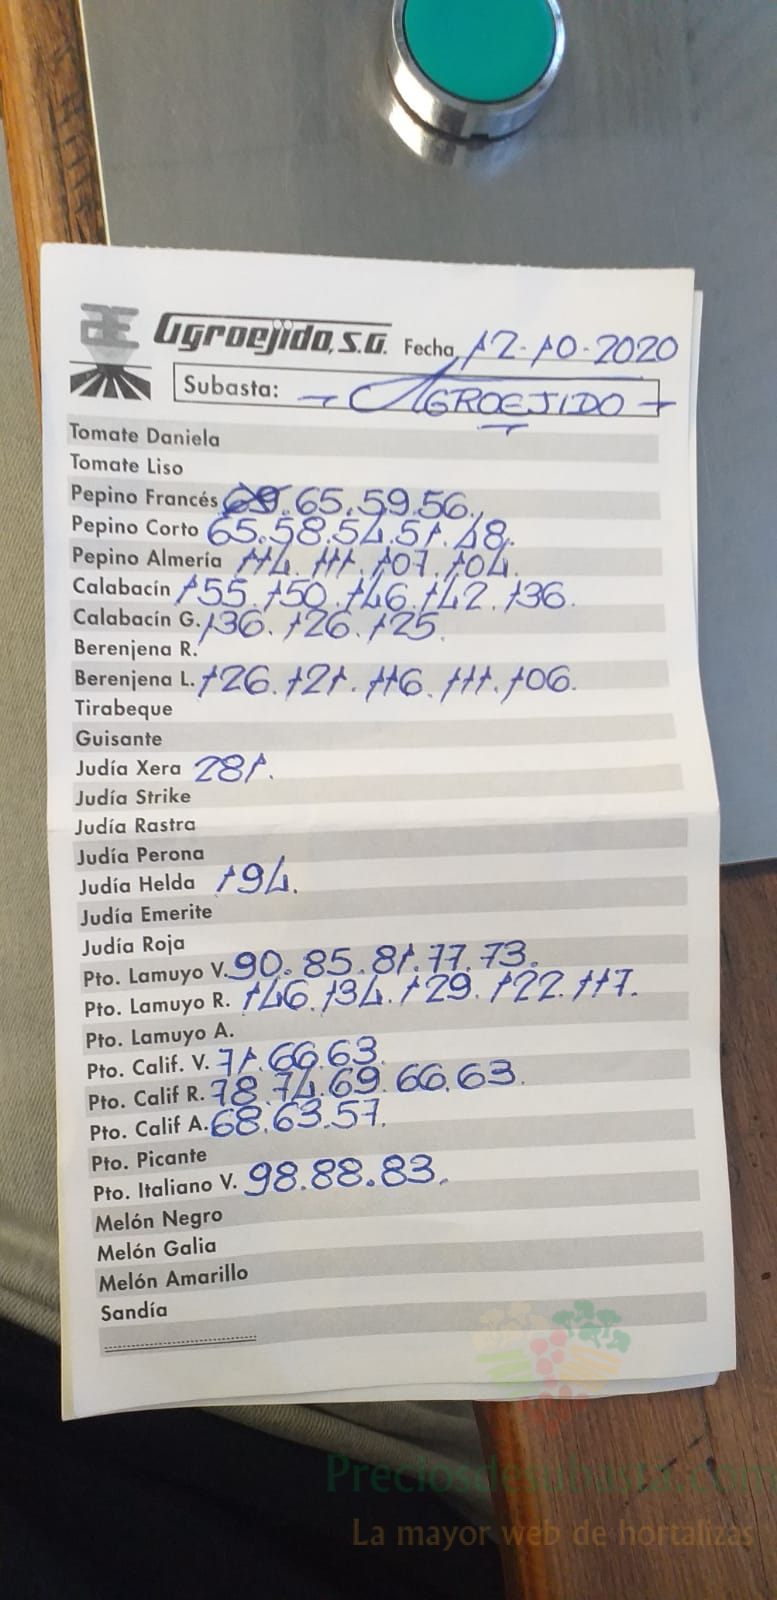 Agroejido, S.A. Fecha 12-10-2020
Subasta: - AGROEJIDO -
Tomate Daniela
Tomate Liso
Pepino Francés 65.59.56.
Pepino Corto 65.58.54.51.48.
Pepino Almería 114. 111. 107. 104.
Calabacín 155. 150. 146. 142. 136.
Calabacín G. 136. 126. 125.
Berenjena R.
Berenjena L. 126. 121. 116. 111. 106.
Tirabeque
Guisante
Judía Xera 281.
Judía Strike
Judía Rastra
Judía Perona
Judía Helda 194.
Judía Emerite
Judía Roja
Pto. Lamuyo V. 90. 85. 81. 77. 73.
Pto. Lamuyo R. 146. 134. 129. 122. 117.
Pto. Lamuyo A.
Pto. Calif. V. 71. 66. 63.
Pto. Calif R. 78. 74. 69. 66. 63.
Pto. Calif A. 68. 63. 57.
Pto. Picante
Pto. Italiano V. 98. 88. 83.
Melón Negro
Melón Galia
Melón Amarillo
Sandía
Preciosdesubasta.com
La mayor web de hortalizas